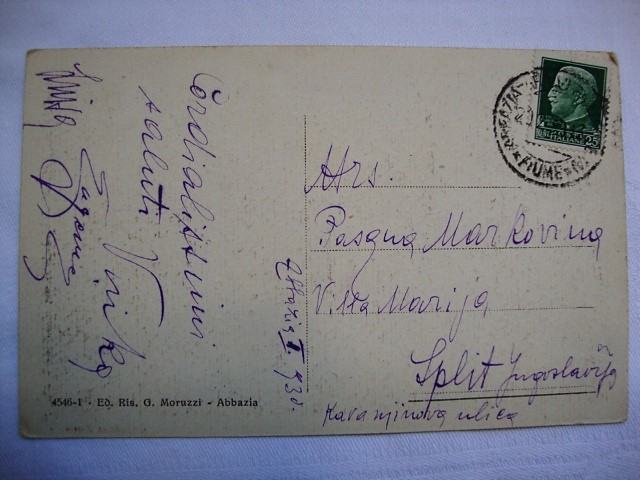 Cordialissimi
saluti Vinko
Abbazia II. 930.
Mrs.
Pasqua Markovina
Villa Marija
Split Jugoslavija
Karamjinova ulica
4546-1 - Ed. Ris. G. Moruzzi - Abbazia
ABBAZIA
FIUME
ITALIANE
25